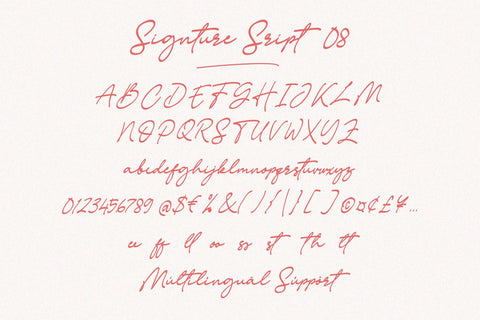 Signture Sript 08
ABCDEFGHIJKLM
NOPQRSTUVWXYZ
abcdefghijklmnopqrstuvwxyz
0123456789 @$€%&(/)/|\|}[]©¤¢£¥...
ee ff ll oo ss st th tt
Multilingual Support